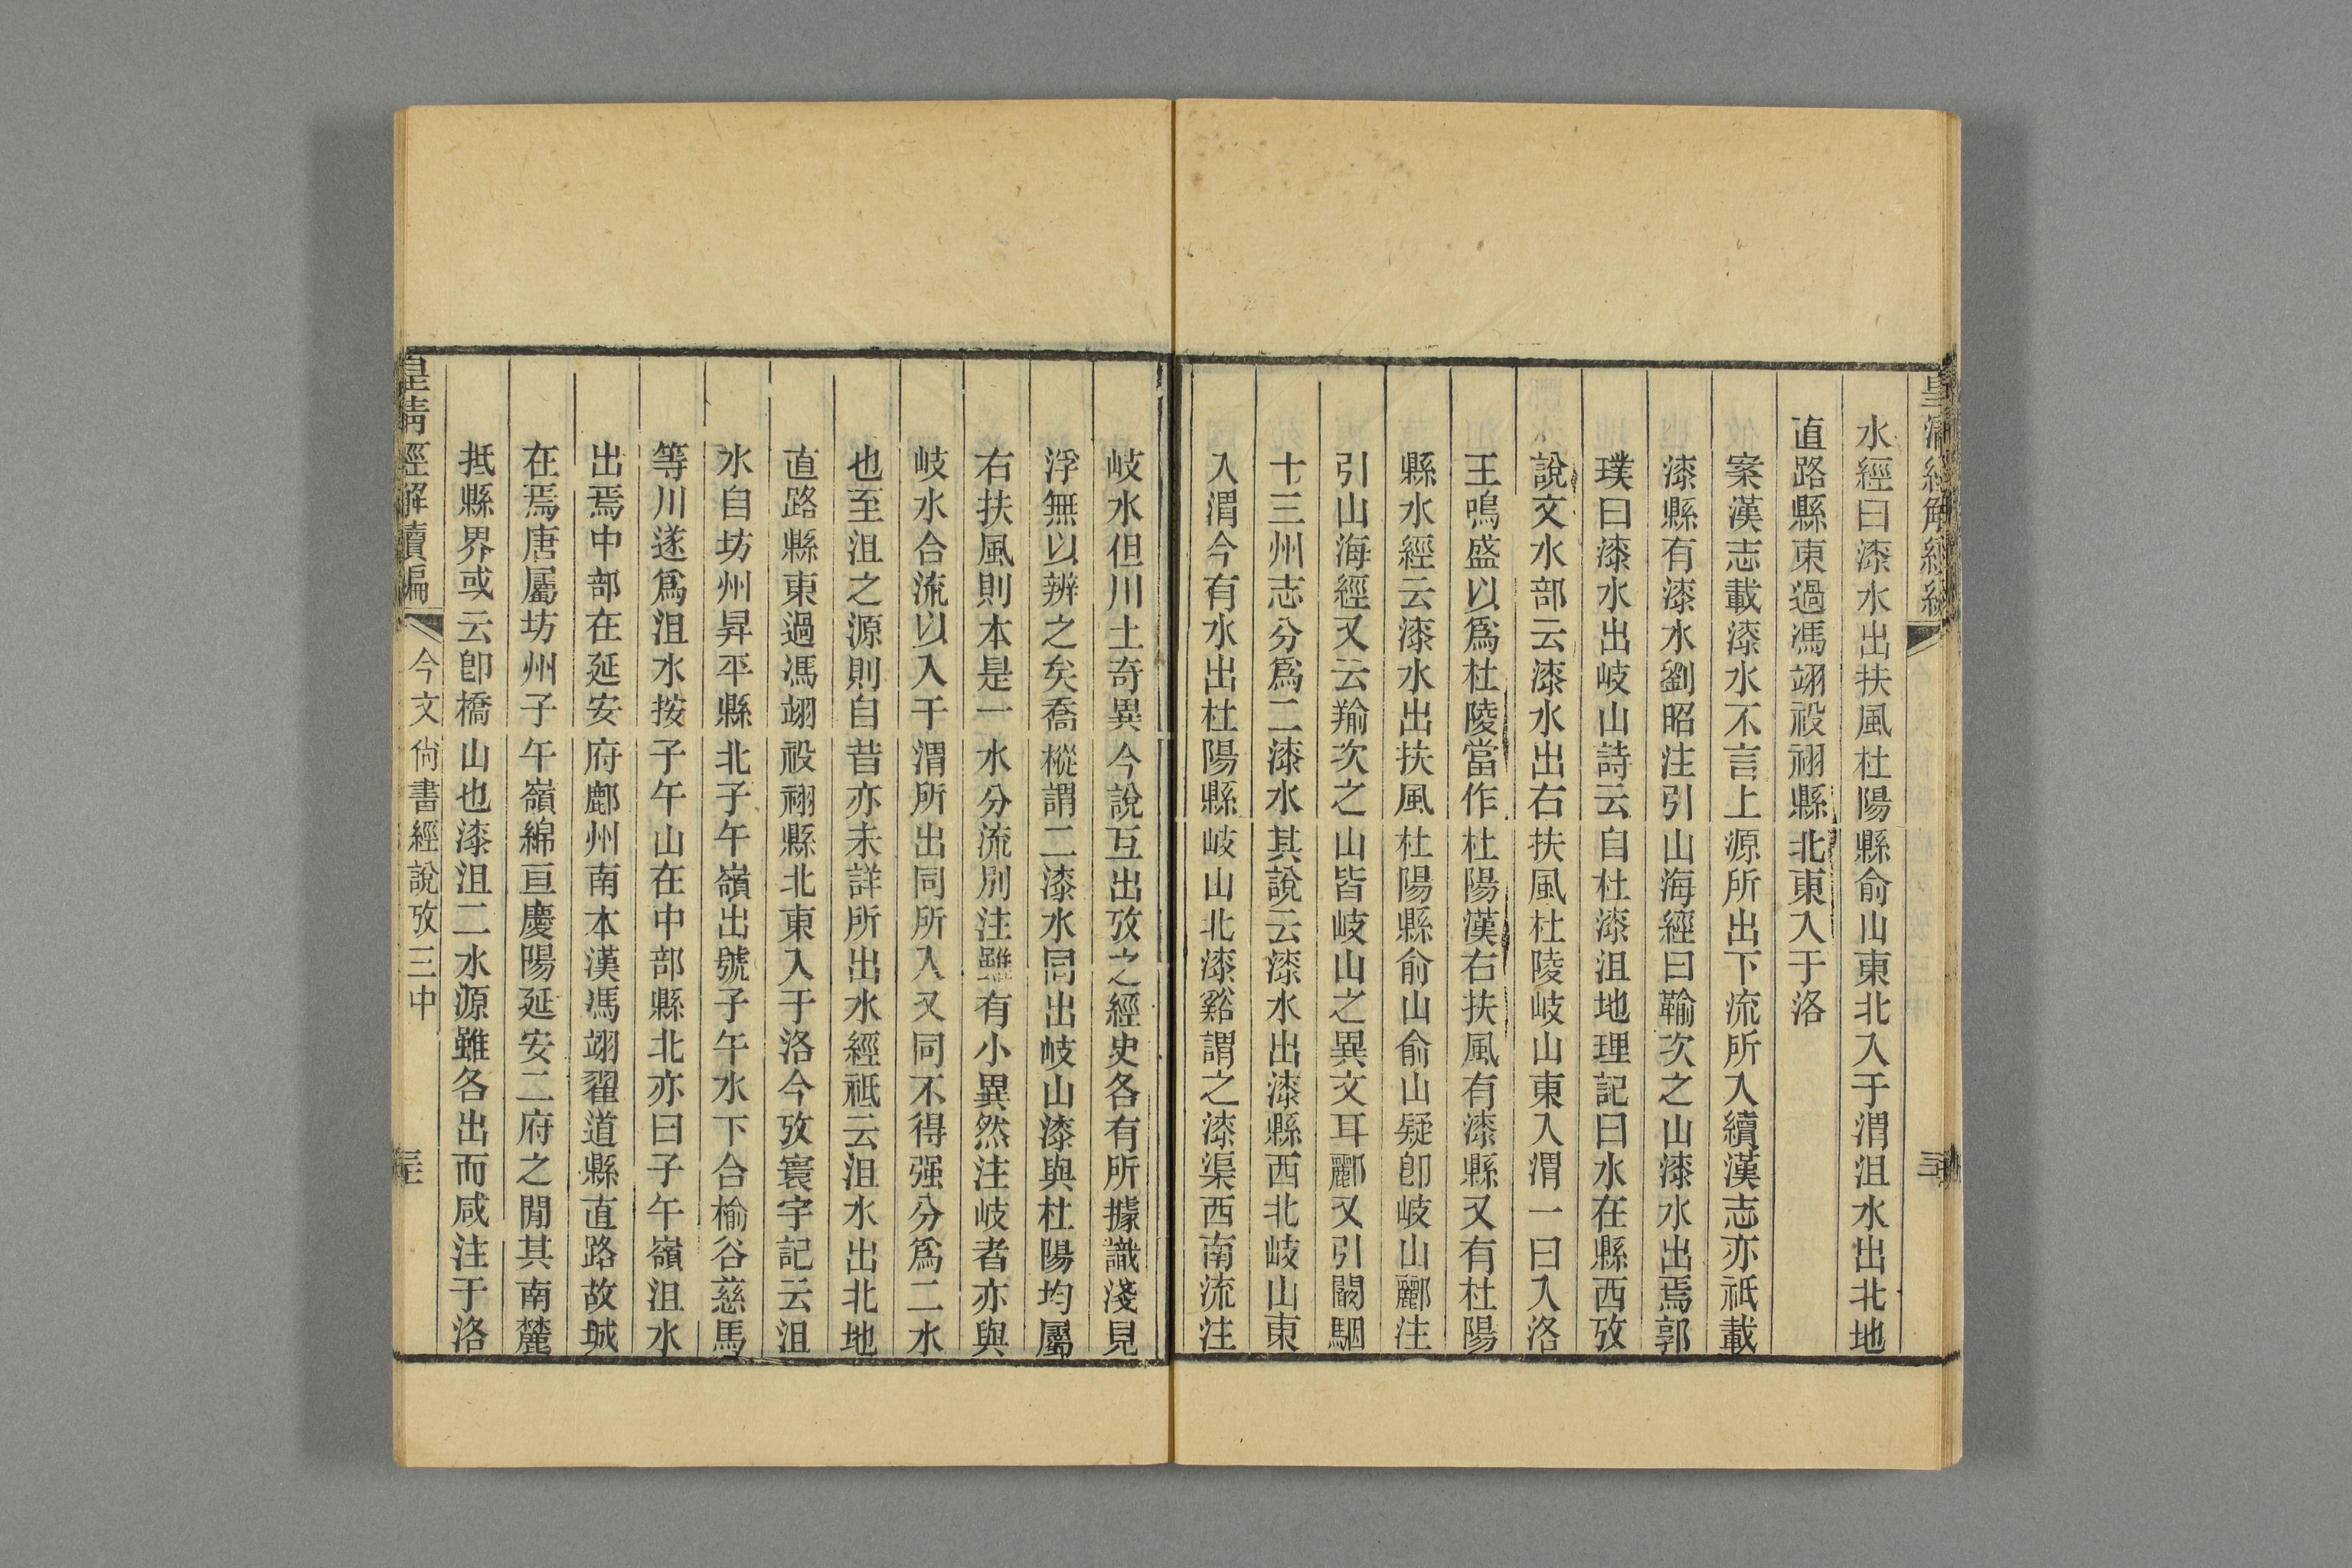 水經曰漆水出扶風杜陽縣俞山東北入于渭沮水出北地
直路縣東過馮翊祋祤縣北東入于洛
案漢志載漆水不言上源所出下流所入續漢志亦祇載
漆縣有漆水劉昭注引山海經曰羭次之山漆水出焉郭
璞曰漆水出岐山詩云自杜漆沮地理記曰水在縣西攷
說文水部云漆水出右扶風杜陵岐山東入渭一曰入洛
王鳴盛以爲杜陵當作杜陽漢右扶風有漆縣又有杜陽
縣水經云漆水出扶風杜陽縣俞山俞山疑卽岐山酈注
引山海經又云羭次之山皆岐山之異文耳酈又引闞駰
十三州志分爲二漆水其說云漆水出漆縣西北岐山東
入渭今有水出杜陽縣岐山北漆谿謂之漆渠西南流注
岐水但川土奇異今說互出攷之經史各有所據識淺見
浮無以辨之矣喬樅謂二漆水同出岐山漆與杜陽均屬
右扶風則本是一水分流別注雖有小異然注岐者亦與
岐水合流以入于渭所出同所入又同不得强分爲二水
也至沮之源則自昔亦未詳所出水經祗云沮水出北地
直路縣東過馮翊祋祤縣北東入于洛今攷寰宇記云沮
水自坊州昇平縣北子午嶺出號子午水下合榆谷慈馬
等川遂爲沮水按子午山在中部縣北亦曰子午嶺沮水
出焉中部在延安府鄜州南本漢馮翊翟道縣直路故城
在焉唐屬坊州子午嶺綿亘慶陽延安二府之閒其南麓
抵縣界或云卽橋山也漆沮二水源雖各出而咸注于洛
皇清經解續編
今文尙書經說攷三中